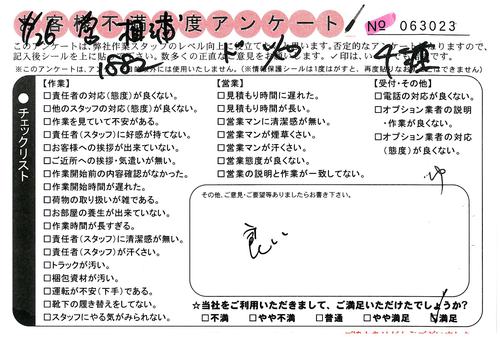 お客様不満足度アンケート
No 063023
9/26
1882
このアンケートは、弊社作業スタッフのレベル向上に役立てたいと思います。否定的なアンケートになりますので、
記入後シールを上に貼って下さい。数多くの正直なご意見をお願いします。✓印は、いくつでも結構です。
【作業】
□責任者の対応(態度)が良くない。
□他のスタッフの対応(態度)が良くない。
□作業を見ていて不安がある。
□責任者(スタッフ)に好感が持てない。
□お客様への挨拶が出来ていない。
□ご近所への挨拶・気遣いが無い。
□作業開始前の内容確認がなかった。
□作業開始時間が遅れた。
□荷物の取り扱いが雑である。
□お部屋の養生が出来ていない。
□作業時間が長すぎる。
□責任者(スタッフ)に清潔感が無い。
□責任者(スタッフ)が汗くさい。
□トラックが汚い。
□梱包資材が汚い。
□運転が不安(下手)である。
□靴下の履き替えをしてない。
□スタッフにやる気がみられない。
【営業】
□見積もり時間に遅れた。
□見積もり時間が長い。
□営業マンに清潔感が無い。
□営業マンが煙草くさい。
□営業マンが汗くさい。
□営業態度が良くない。
□営業の説明と作業が一致してない。
【受付・その他】
□電話の対応が良くない。
□オプション業者の説明
・作業が良くない。
□オプション業者の対応
(態度)が良くない。
●チェックリスト
その他、ご意見・ご要望等ありましたらお書き下さい。
良い
☆当社をご利用いただきまして、ご満足いただけたでしょうか?
□不満 □やや不満 □普通 □やや満足 ☑満足